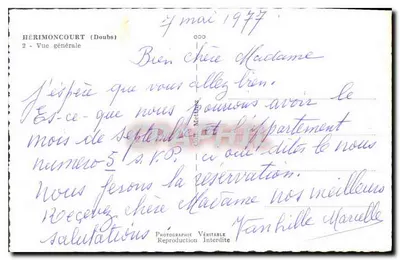 7 mai 1977
HÉRIMONCOURT (Doubs)
2 - Vue générale
Bien chère Madame
J'espère que vous allez bien.
Es-ce-que nous pourions avoir le
mois de septembre et l'appartement
numero 5 s.v.P. si oui dites le nous
Nous ferons la réservation.
Recevez chère Madame nos meilleurs
salutations. Marcelle
PHOTOGRAPHIE VÉRITABLE
Reproduction Interdite